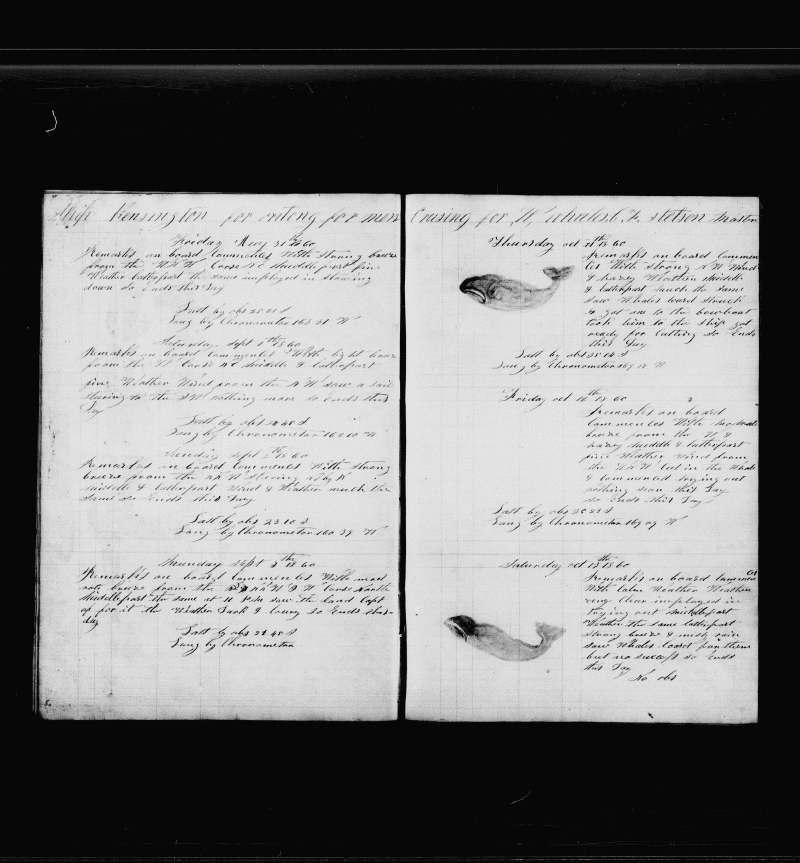 Ship Kensington for ontong for more
Friday Aug 31th 1860
Remarks on board Commences With Strong breeze
from the N.N.W Corse N E Middlepart fine
Weather latterpart the same imployed in Stowing
down so Ends this Day
Latt by obs 25 21 S
Long by Chronometer 163 31 W
Saturday Sept 1th 1860
Remarks on board Commences With light breeze
from the N Corse N E Middle & latterpart
fine Weather Wind from the N W saw a Sail
Stering to the SW nothing more so Ends this
Day
Latt by obs 24 45 S
Long by Chronometer 162 10 W
Sunday Sept 2th 1860
Remarks on board Commences With Strong
breeze from the N W Stering N by E
Middle & latterpart Wind & Weather much the
same so Ends this Day
Latt by obs 23 10 S
Long by Chronometer 160 39 W
Munday Sept 3th 1860
Remarks on board Commences With mod
rate breeze from the W Corse North
Middlepart the same at 11 P.M saw the land Kept
of for it the Weather Dark & so Ends this
day
Latt by obs 21 40 S
Long by Chronometer
Crusing for W, Whales, C F, Stetson Master
Thursday oct 11th 1860
Remarks on board Commen
ces With Strong N W Wind
& hazey Weather Middle
& latterpart much the same
saw Whales loard Struck
& got one to the bowboat
took him to the Ship got
ready for Cutting so Ends
this Day
Latt by obs 25 14 S
Long by Chronometer 169 18 W
Friday oct 12th 1860
Remarks on board
Commences With Moderate
breeze from the N &
hazey Middle & latterpart
fine Weather Wind from
the Cut in the Whale
& Commenced trying out
nothing seen this Day
so Ends this Day
Latt by obs 25 23 S
Long by Chronometer 169 09 W
Saturday oct 13th 1860
Remarks on board Commences
With Calm Weather Weather
very Clear imployed in
trying out Middlepart
Weather the same latterpart
Strong breeze & misty rain
saw Whales loard for them
but no success so Ends
this Day
No obs